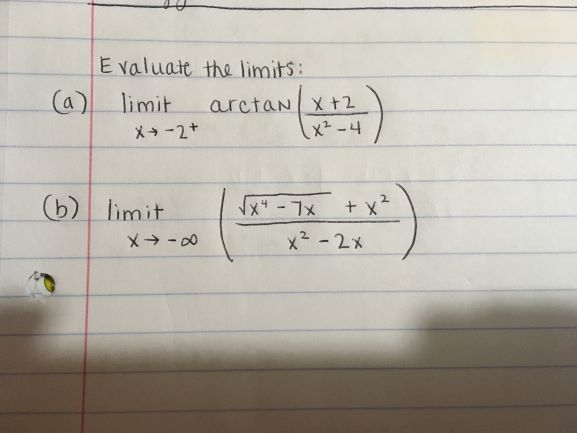 Evaluate the limits:
(a) limit x→-2+ arctan((x+2)/(x²-4))
(b) limit x→-∞ ((√(x⁴-7x) + x²)/(x²-2x))